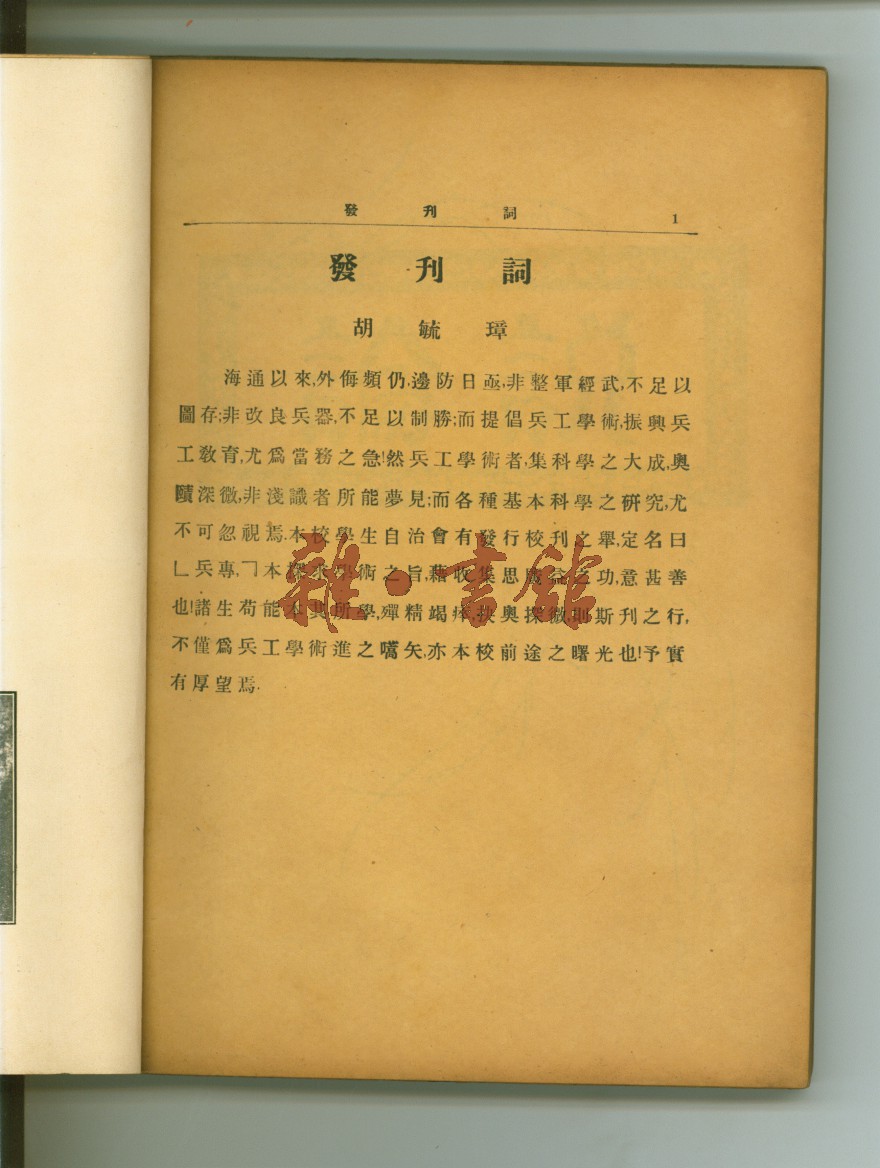 發刊詞 1
發刊詞
胡毓璋
海通以來,外侮頻仍,邊防日亟,非整軍經武,不足以
圖存;非改良兵器,不足以制勝;而提倡兵工學術,振興兵
工敎育,尤爲當務之急!然兵工學術者,集科學之大成,奧
賾深微,非淺識者所能夢見;而各種基本科學之硏究,尤
不可忽視焉.本校學生自治會有發行校刊之舉,定名曰
㇄兵專,㇕本探求學術之旨,藉收集思廣益之功,意甚善
也!諸生苟能本其所學,殫精竭瘁,抉奧探微,則斯刊之行,
不僅爲兵工學術進之嚆矢,亦本校前途之曙光也!予實
有厚望焉.
雜·書館